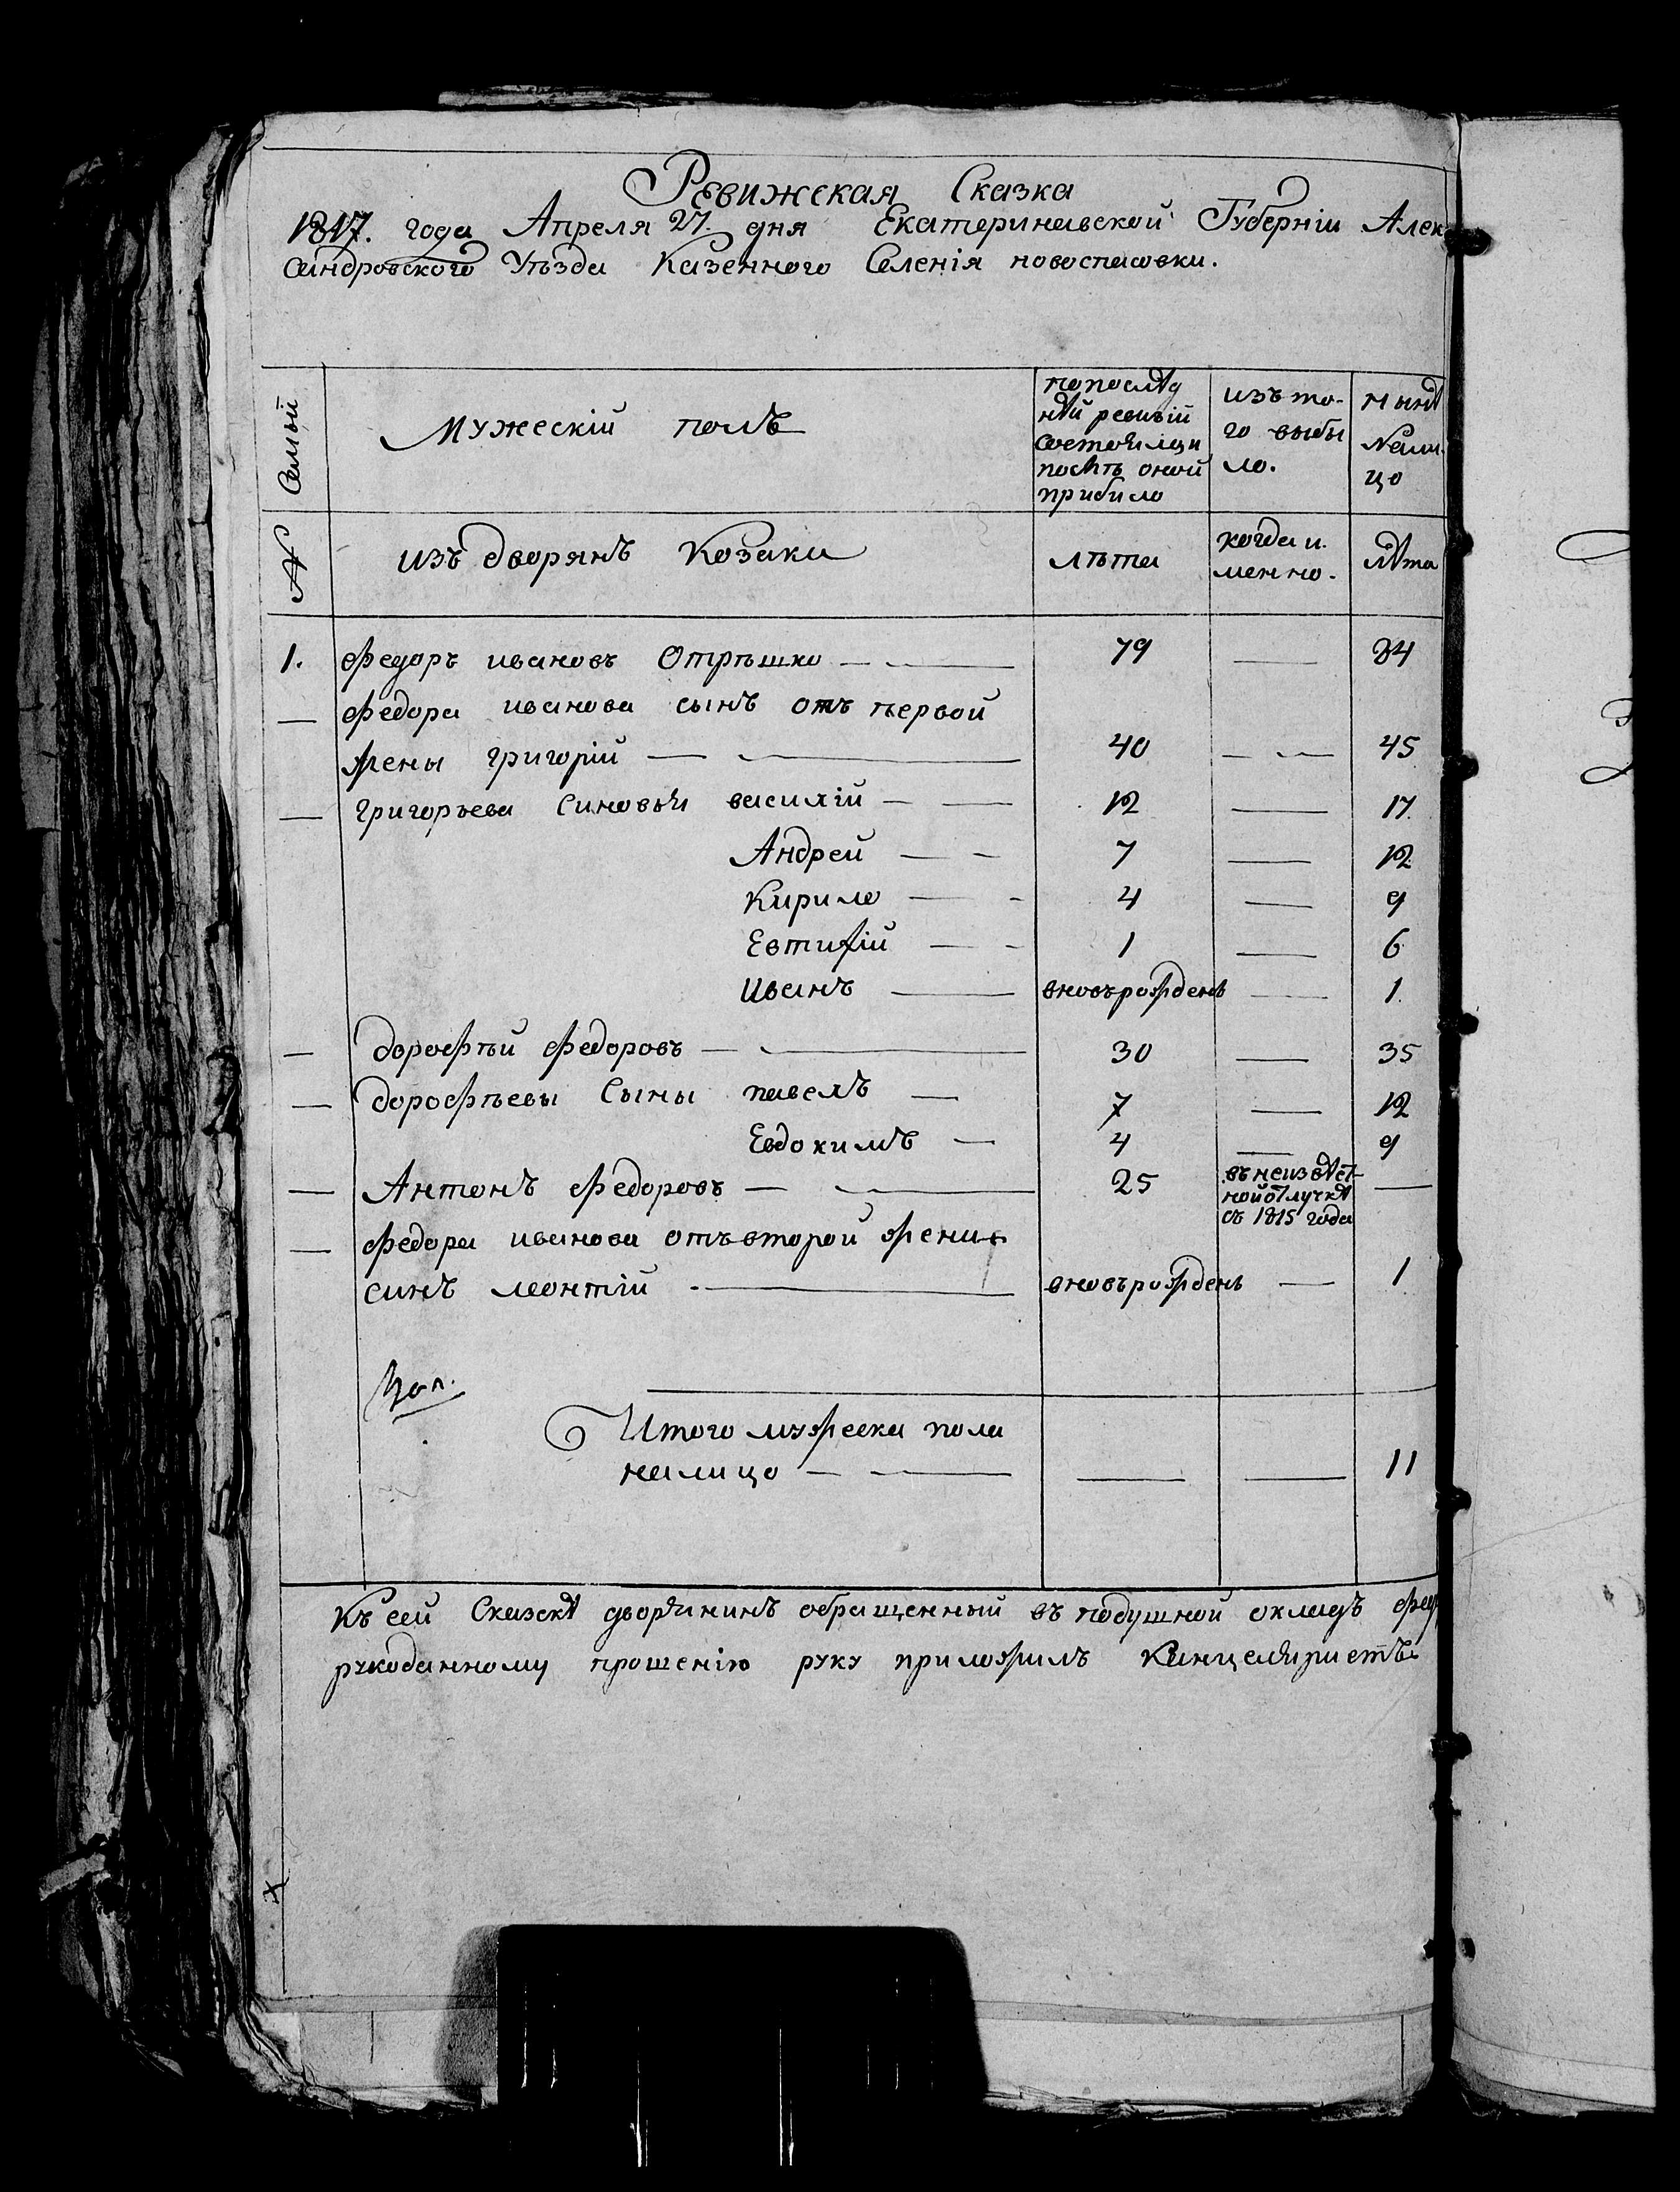 Ревижская Сказка
1817. года Апреля 27. дня Екатеринавской Губерніи Алек
сандровского Уѣзда Казенного Селенія новоспасовки.
Семьи Мужескій полъ попослѣд изъ то- нынѣ
нѣй ревизіи го выбы Нали-
состоялаи ло. цо
послѣ оной
прибило
№ изъ дворянъ Козаки лѣта когда и лѣта
менно.
1. Федоръ ивановъ Отрѣшко — — 79 — 84
— Федора иванова сынъ отъ первой
жены григорій — — 40 — — 45
— григорьева Синовья василій — — 12 — 17
Андрей — — 7 — 12
Кирило — - 4 — 9
Евтифій — - 1 — 6
Иванъ — вновьрожденъ — 1.
— дорофѣй Федоровъ — — 30 — 35
— дорофѣевы Сыны павелъ — 7 — 12
Евдокимъ — 4 — 9
— Антонъ Федоровъ — — 25 въ неизвѣст- —
ной отлучкѣ
съ 1815 года
— Федора иванова отъ второй жени
синъ леонтій — вновьрожденъ — 1
Итого мужеска пола
налицо — — — — 11
Къ сей Сказкѣ дворянинъ обращенный въ подушной окладъ Фед
рукоданному прошенію руку приложилъ Канцеляристъ